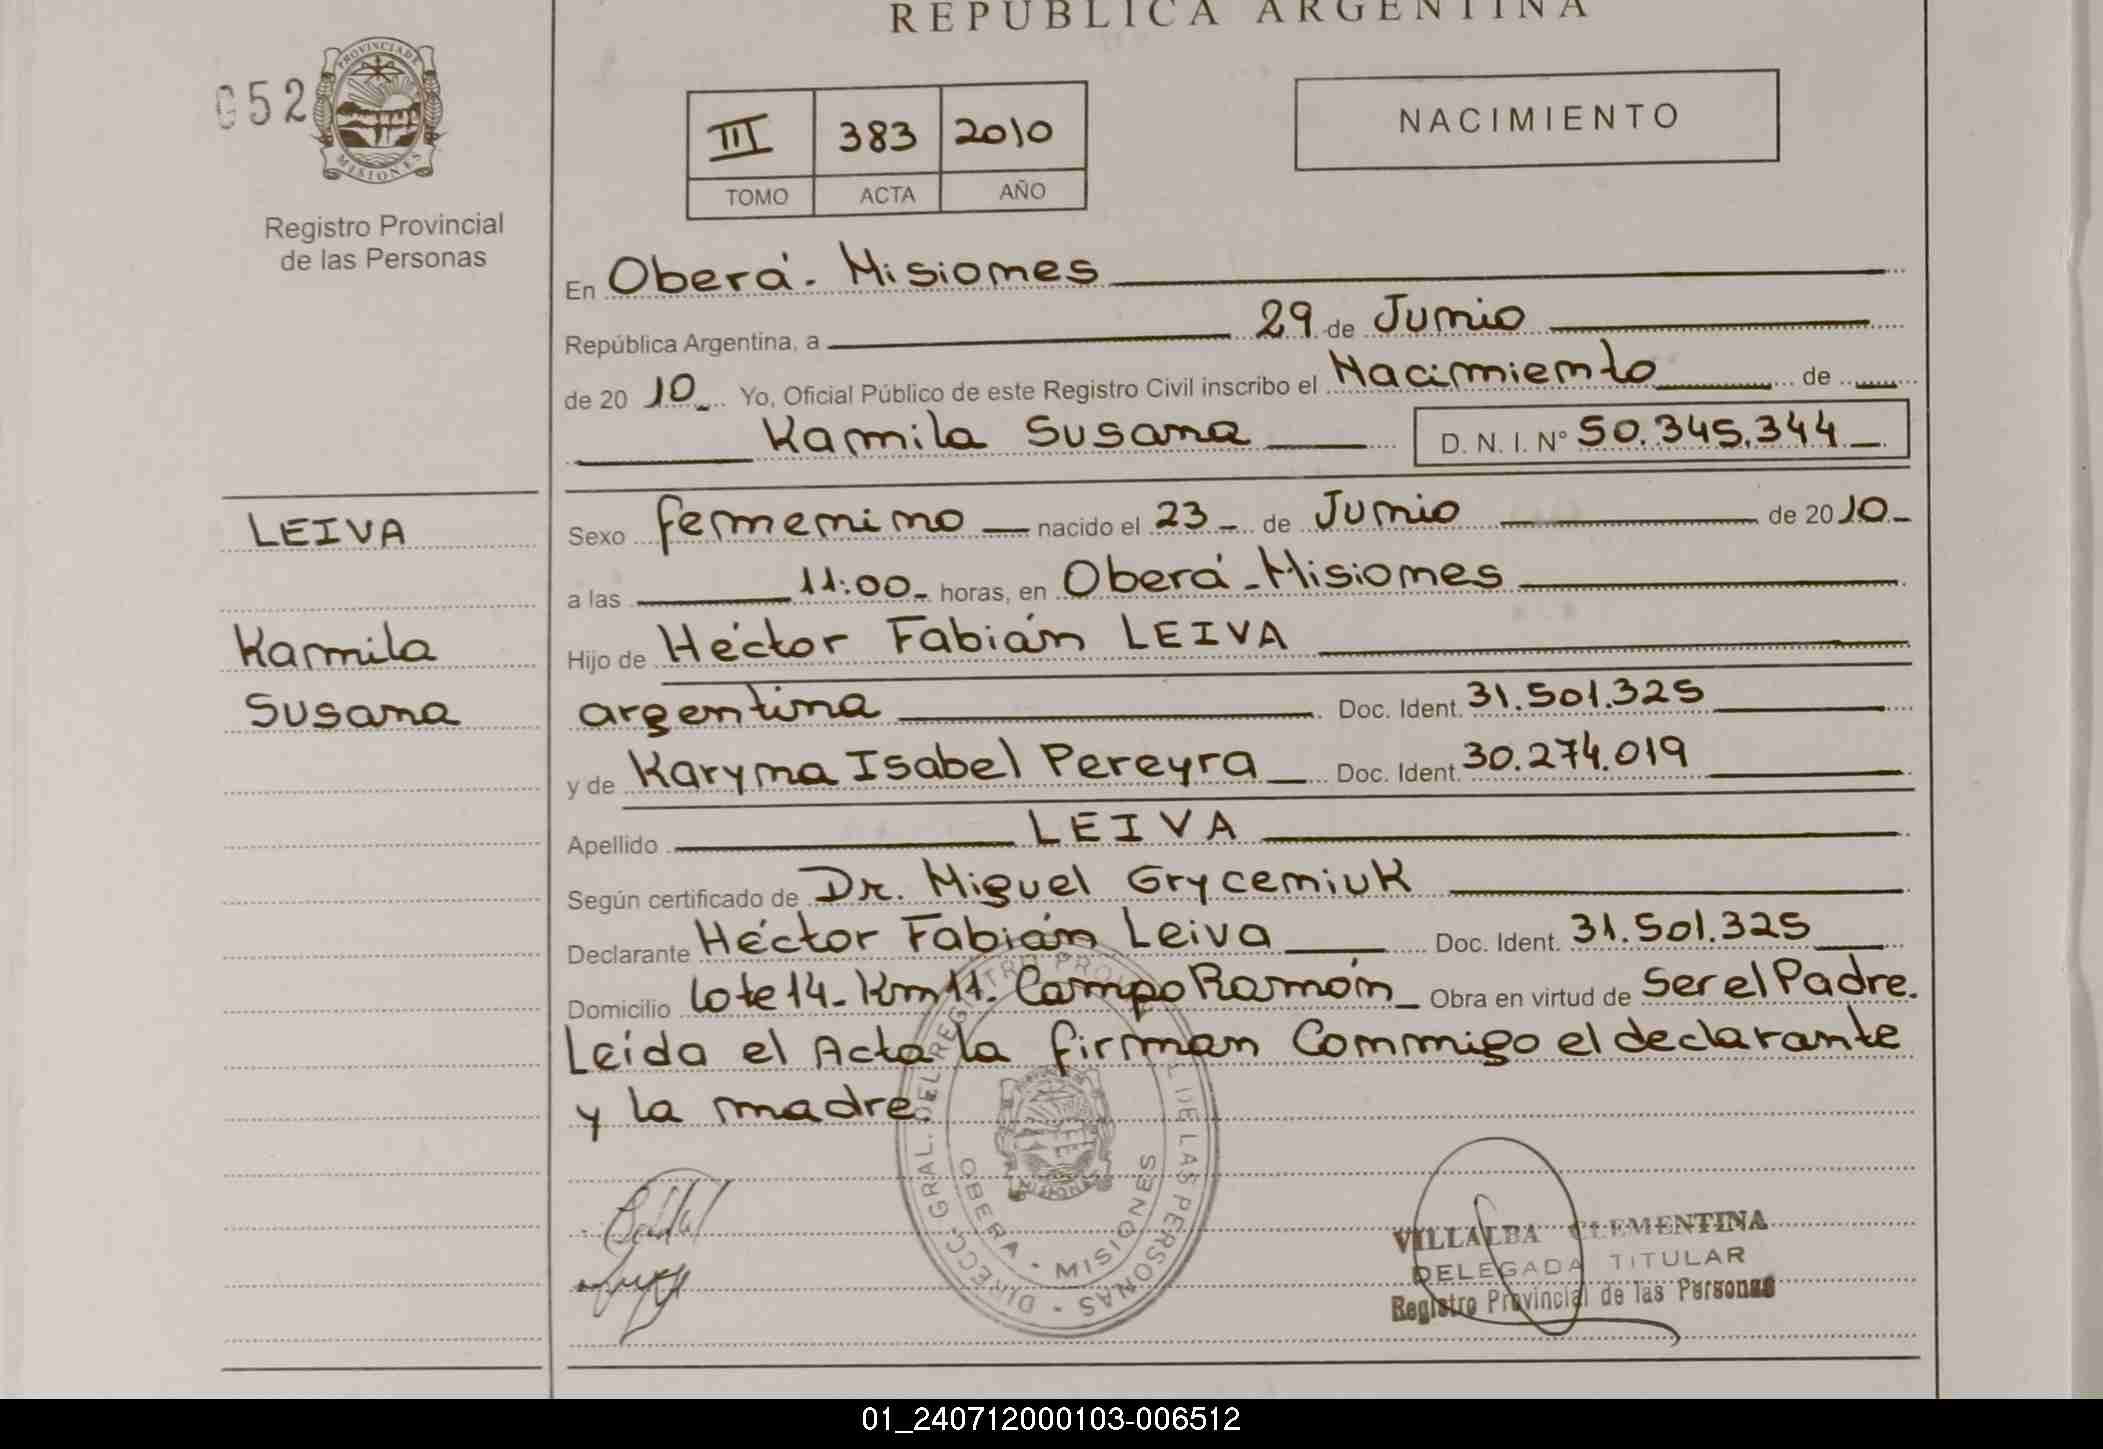 REPUBLICA ARGENTINA
052
PROVINCIA DE MISIONES
Registro Provincial
de las Personas
III 383 2010
TOMO ACTA AÑO
NACIMIENTO
En Oberá - Misiones
República Argentina, a 29 de Junio
de 20 10 Yo, Oficial Público de este Registro Civil inscribo el Nacimiento de
Kamila Susana D. N. I. N° 50.345.344
LEIVA
Kamila
Susana
Sexo femenino nacido el 23 de Junio de 20 10
a las 11:00 horas, en Oberá - Misiones
Hijo de Héctor Fabián LEIVA
argentina Doc. Ident. 31.501.325
y de Karyna Isabel Pereyra Doc. Ident. 30.274.019
Apellido LEIVA
Según certificado de Dr. Miguel Gryceniuk
Declarante Héctor Fabián Leiva Doc. Ident. 31.501.325
Domicilio lote 14 - Km 11. Campo Ramón Obra en virtud de Ser el Padre.
Leída el Acta la firman Conmigo el declarante
y la madre.
DIRECC. GRAL. DEL REGISTRO PROVINCIAL DE LAS PERSONAS
OBERA - MISIONES
VILLALBA CLEMENTINA
DELEGADA TITULAR
Registro Provincial de las Personas
01_240712000103-006512